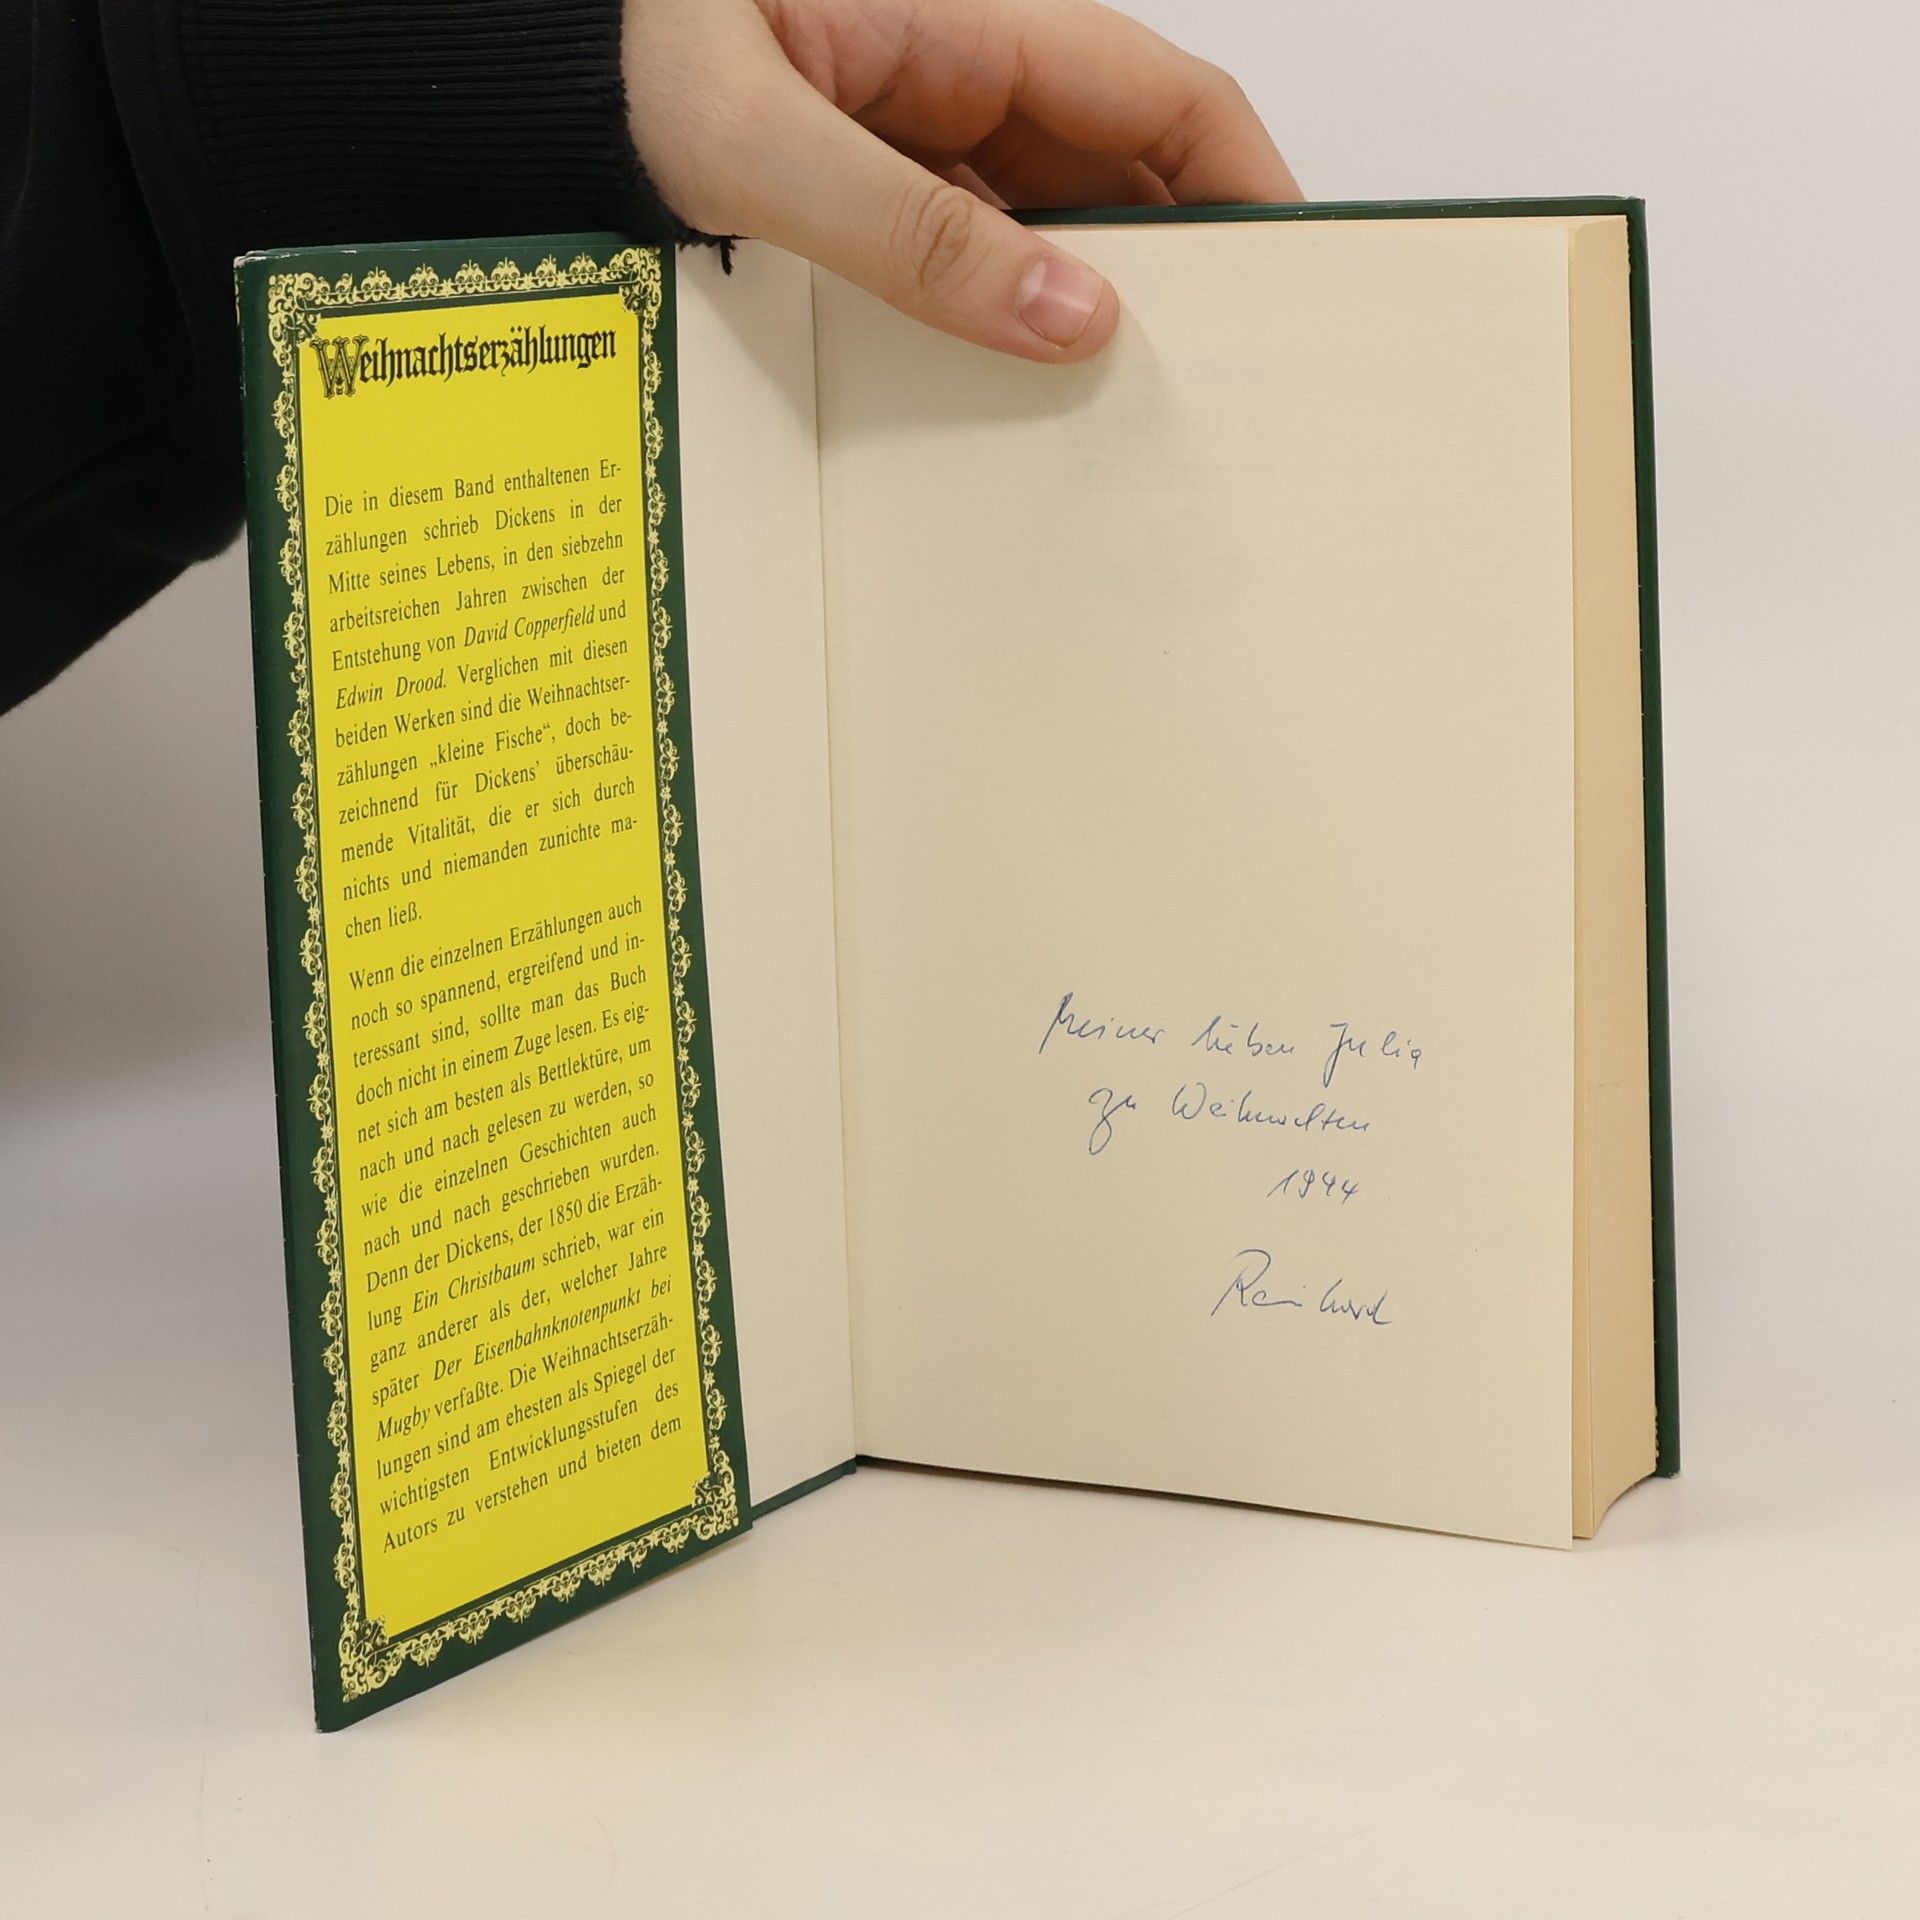 Weihnachtserzählungen
Die in diesem Band enthaltenen Er-
zählungen schrieb Dickens in der
Mitte seines Lebens, in den siebzehn
arbeitsreichen Jahren zwischen der
Entstehung von David Copperfield und
Edwin Drood. Verglichen mit diesen
beiden Werken sind die Weihnachtser-
zählungen „kleine Fische“, doch be-
zeichnend für Dickens' überschäu-
mende Vitalität, die er sich durch
nichts und niemanden zunichte ma-
chen ließ.
Wenn die einzelnen Erzählungen auch
noch so spannend, ergreifend und in-
teressant sind, sollte man das Buch
doch nicht in einem Zuge lesen. Es eig-
net sich am besten als Bettlektüre, um
nach und nach gelesen zu werden, so
wie die einzelnen Geschichten auch
nach und nach geschrieben wurden.
Denn der Dickens, der 1850 die Erzäh-
lung Ein Christbaum schrieb, war ein
ganz anderer als der, welcher Jahre
später Der Eisenbahnknotenpunkt bei
Mugby verfaßte. Die Weihnachtserzäh-
lungen sind am ehesten als Spiegel der
wichtigsten Entwicklungsstufen des
Autors zu verstehen und bieten dem
Meiner lieben Julia
zu Weihnachten
1994
Reinhard